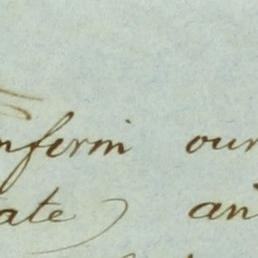 nform our
tate) an